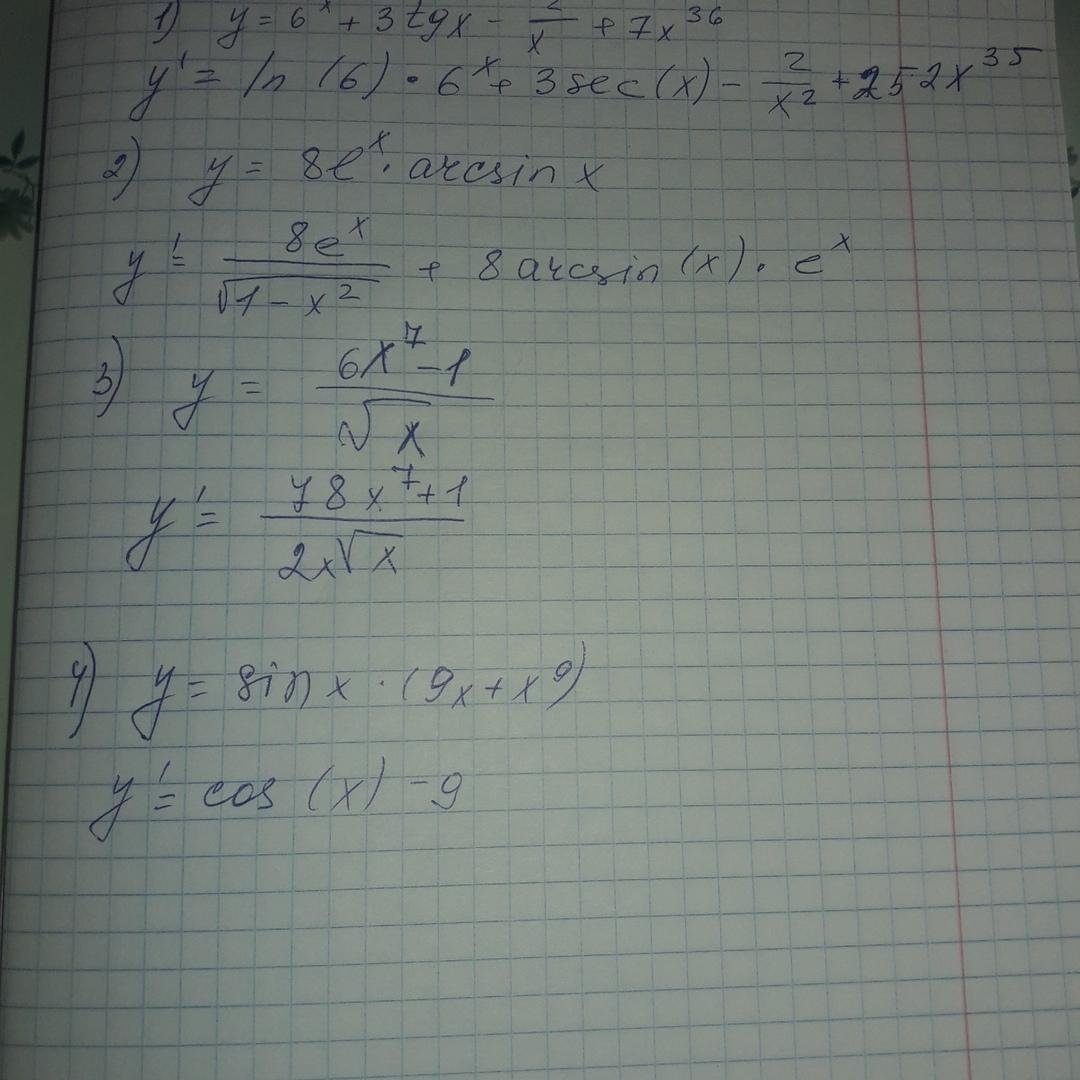 1) y = 6^x + 3 tg x - 2/x + 7x^36
y' = ln (6) · 6^x + 3 sec (x) - 2/x^2 + 252x^35
2) y = 8e^x · arcsin x
y' = 8e^x/√(1-x^2) + 8 arcsin (x) · e^x
3) y = (6x^7-1)/√x
y' = (78x^7+1)/(2x√x)
4) y = sin x · (9x + x^9)
y' = cos (x) - 9